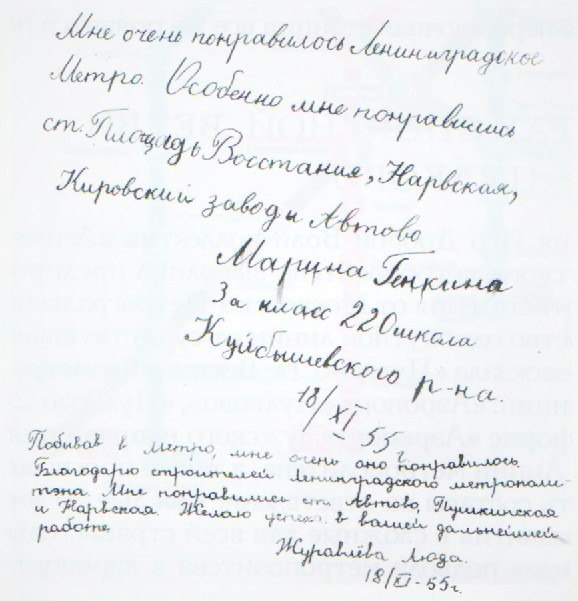 Мне очень понравилось Ленинградское
Метро. Особенно мне понравились
ст. Площадь Восстания, Нарвская,
Кировский завод и Автово
Марина Генкина
3а класс 220 школа
Куйбышевского р-на.
18/XI 55 г.
Побывав в метро, мне очень оно понравилось.
Благодарю строителей Ленинградского метрополи-
тэна. Мне понравились ст. Автово, Пушкинская
и Нарвская. Желаю успеха в вашей дальнейшей
работе.
Журавлёва Лада.
18/XI-55г.